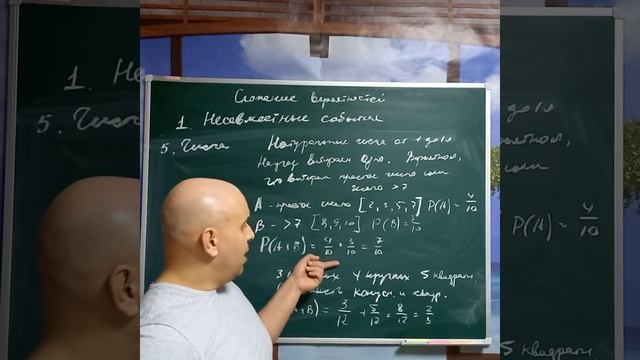 Сложение вероятностей
1. Несовместные события
5. Числа. Натуральные числа от 1 до 10
Наугад выбираем одно. Вероятность,
что выбрали простое число или
число > 7
A - простое число [2, 3, 5, 7] P(A) = 4/10
B - > 7 [8, 9, 10] P(B) = 3/10
P(A+B) = 4/10 + 3/10 = 7/10
3 4 круглых 5 квадрат.
и квадр.
+B) = 3/12 + 5/12 = 8/12 = 2/3